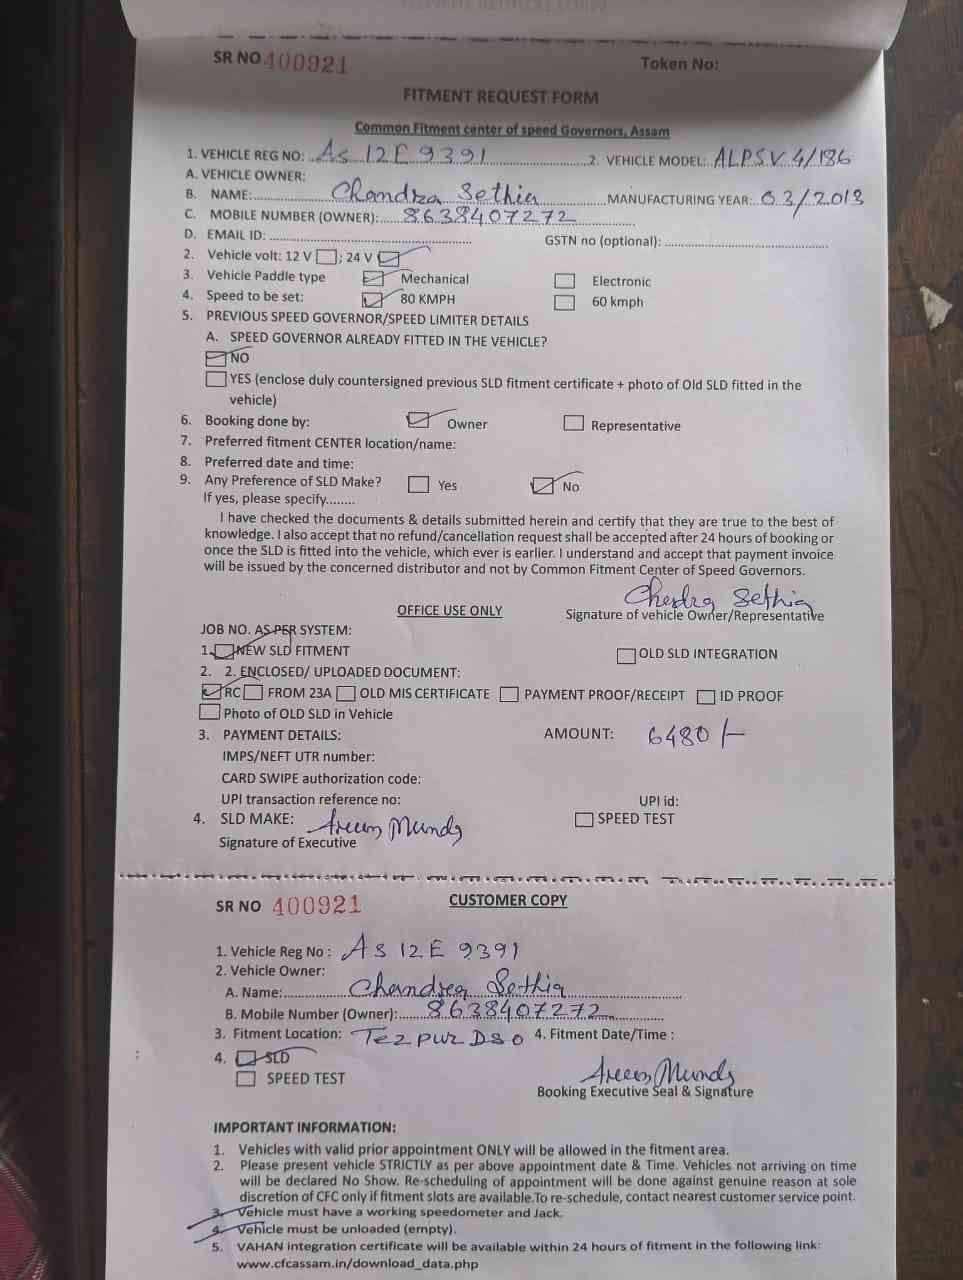 SR NO 400921 Token No:
FITMENT REQUEST FORM
Common Fitment center of speed Governors, Assam
1. VEHICLE REG NO: As 12E 9391 2. VEHICLE MODEL: ALPSV 4/186
A. VEHICLE OWNER:
B. NAME: Chandra Sethia MANUFACTURING YEAR: 03/2013
C. MOBILE NUMBER (OWNER): 8638407272
D. EMAIL ID: GSTN no (optional):
2. Vehicle volt: 12 V ; 24 V
3. Vehicle Paddle type Mechanical Electronic
4. Speed to be set: 80 KMPH 60 kmph
5. PREVIOUS SPEED GOVERNOR/SPEED LIMITER DETAILS
A. SPEED GOVERNOR ALREADY FITTED IN THE VEHICLE?
NO
YES (enclose duly countersigned previous SLD fitment certificate + photo of Old SLD fitted in the
vehicle)
6. Booking done by: Owner Representative
7. Preferred fitment CENTER location/name:
8. Preferred date and time:
9. Any Preference of SLD Make? Yes No
If yes, please specify........
I have checked the documents & details submitted herein and certify that they are true to the best of
knowledge. I also accept that no refund/cancellation request shall be accepted after 24 hours of booking or
once the SLD is fitted into the vehicle, which ever is earlier. I understand and accept that payment invoice
will be issued by the concerned distributor and not by Common Fitment Center of Speed Governors.
Chandra Sethia
OFFICE USE ONLY Signature of vehicle Owner/Representative
JOB NO. AS PER SYSTEM:
1. NEW SLD FITMENT OLD SLD INTEGRATION
2. 2. ENCLOSED/ UPLOADED DOCUMENT:
RC FROM 23A OLD MIS CERTIFICATE PAYMENT PROOF/RECEIPT ID PROOF
Photo of OLD SLD in Vehicle
3. PAYMENT DETAILS: AMOUNT: 6480/-
IMPS/NEFT UTR number:
CARD SWIPE authorization code:
UPI transaction reference no: UPI id:
4. SLD MAKE: SPEED TEST
Signature of Executive
SR NO 400921 CUSTOMER COPY
1. Vehicle Reg No : As 12E 9391
2. Vehicle Owner:
A. Name: Chandra Sethia
B. Mobile Number (Owner): 8638407272
3. Fitment Location: Tezpur DSO 4. Fitment Date/Time :
4. SLD
SPEED TEST
Booking Executive Seal & Signature
IMPORTANT INFORMATION:
1. Vehicles with valid prior appointment ONLY will be allowed in the fitment area.
2. Please present vehicle STRICTLY as per above appointment date & Time. Vehicles not arriving on time
will be declared No Show. Re-scheduling of appointment will be done against genuine reason at sole
discretion of CFC only if fitment slots are available.To re-schedule, contact nearest customer service point.
3. Vehicle must have a working speedometer and Jack.
4. Vehicle must be unloaded (empty).
5. VAHAN integration certificate will be available within 24 hours of fitment in the following link:
www.cfcassam.in/download_data.php